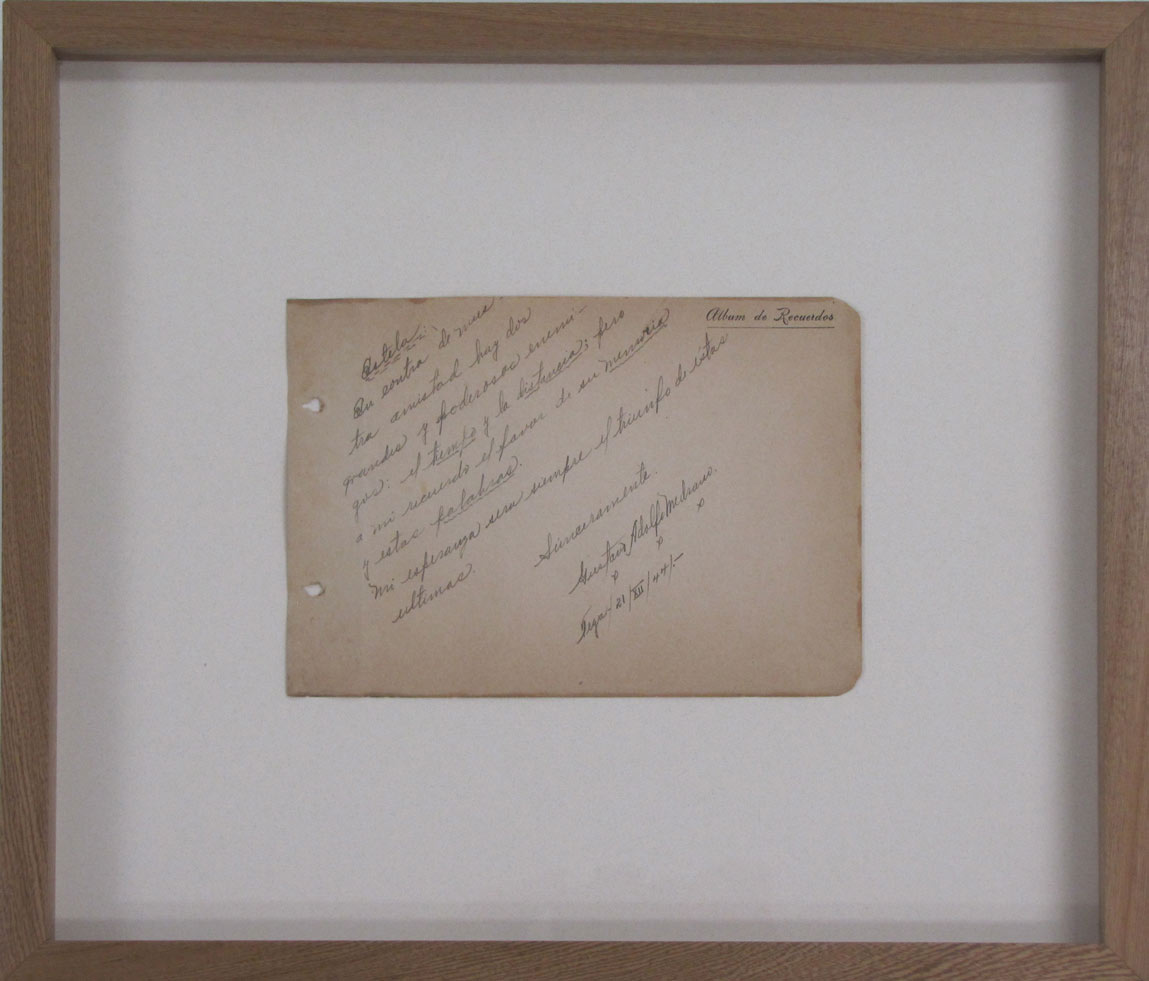 Album de Recuerdos
Estela:
En contra de nues-
tra amistad hay dos
grandes y poderosos enemi-
gos: el tiempo y la distancia; pero
a mi recuerdo el favor de su memoria
y estas palabras.
Mi esperanza sera siempre el triunfo de éstas
ultimas.
Sinceramente.
Gustavo Adolfo Medrano.
x x x
Tega/ 21/XII/44/-